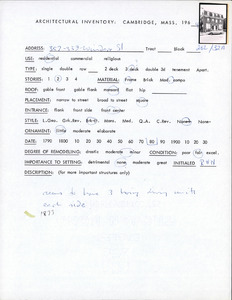 ARCHITECTURAL INVENTORY. CAMBRIDGE, MASS, 196
ADDRESS: St Tract Block
USE: residential commercial religious
TYPE: single double row 2 deck 3 deck double 3d tenement Apart.
STORIES: 1 2 3 4 MATERIAL: Frame Brick Mod. compo
ROOF: gable front gable flank mansard flat hip
PLACEMENT: narrow to street broad to square
ENTRY: narrow front corner side
STYLE: L.Geo. Grk.Rev. Brkt. Mans. Med. Q.A. C.Rev. None
ORNAMENTATION: little moderate elaborate
DATE: 1790 1800 10 20 30 40 50 60 70 80 90 1900 10 20 30
DEGREE OF REMODELING: drastic moderate minor CONDITION: poor fair excel.
IMPORTANCE TO SETTING: detrimental none moderate great INITIALED
DESCRIPTION: (for more important structures only)
seems to have 3
each side
1875